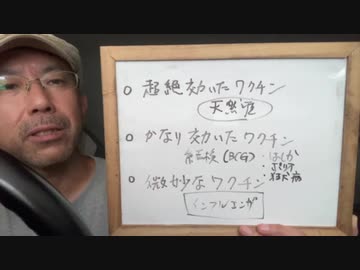 ○ 超絶効いたワクチン
天然痘
○ かなり効いたワクチン
結核(BCG)・はしか
・ポリオ
○ 微妙なワクチン ・狂犬病
インフルエンザ